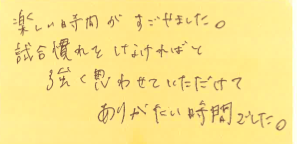 楽しい時間がすごせました。
試合慣れをしなければと
強く思わせていただけて
ありがたい時間でした。